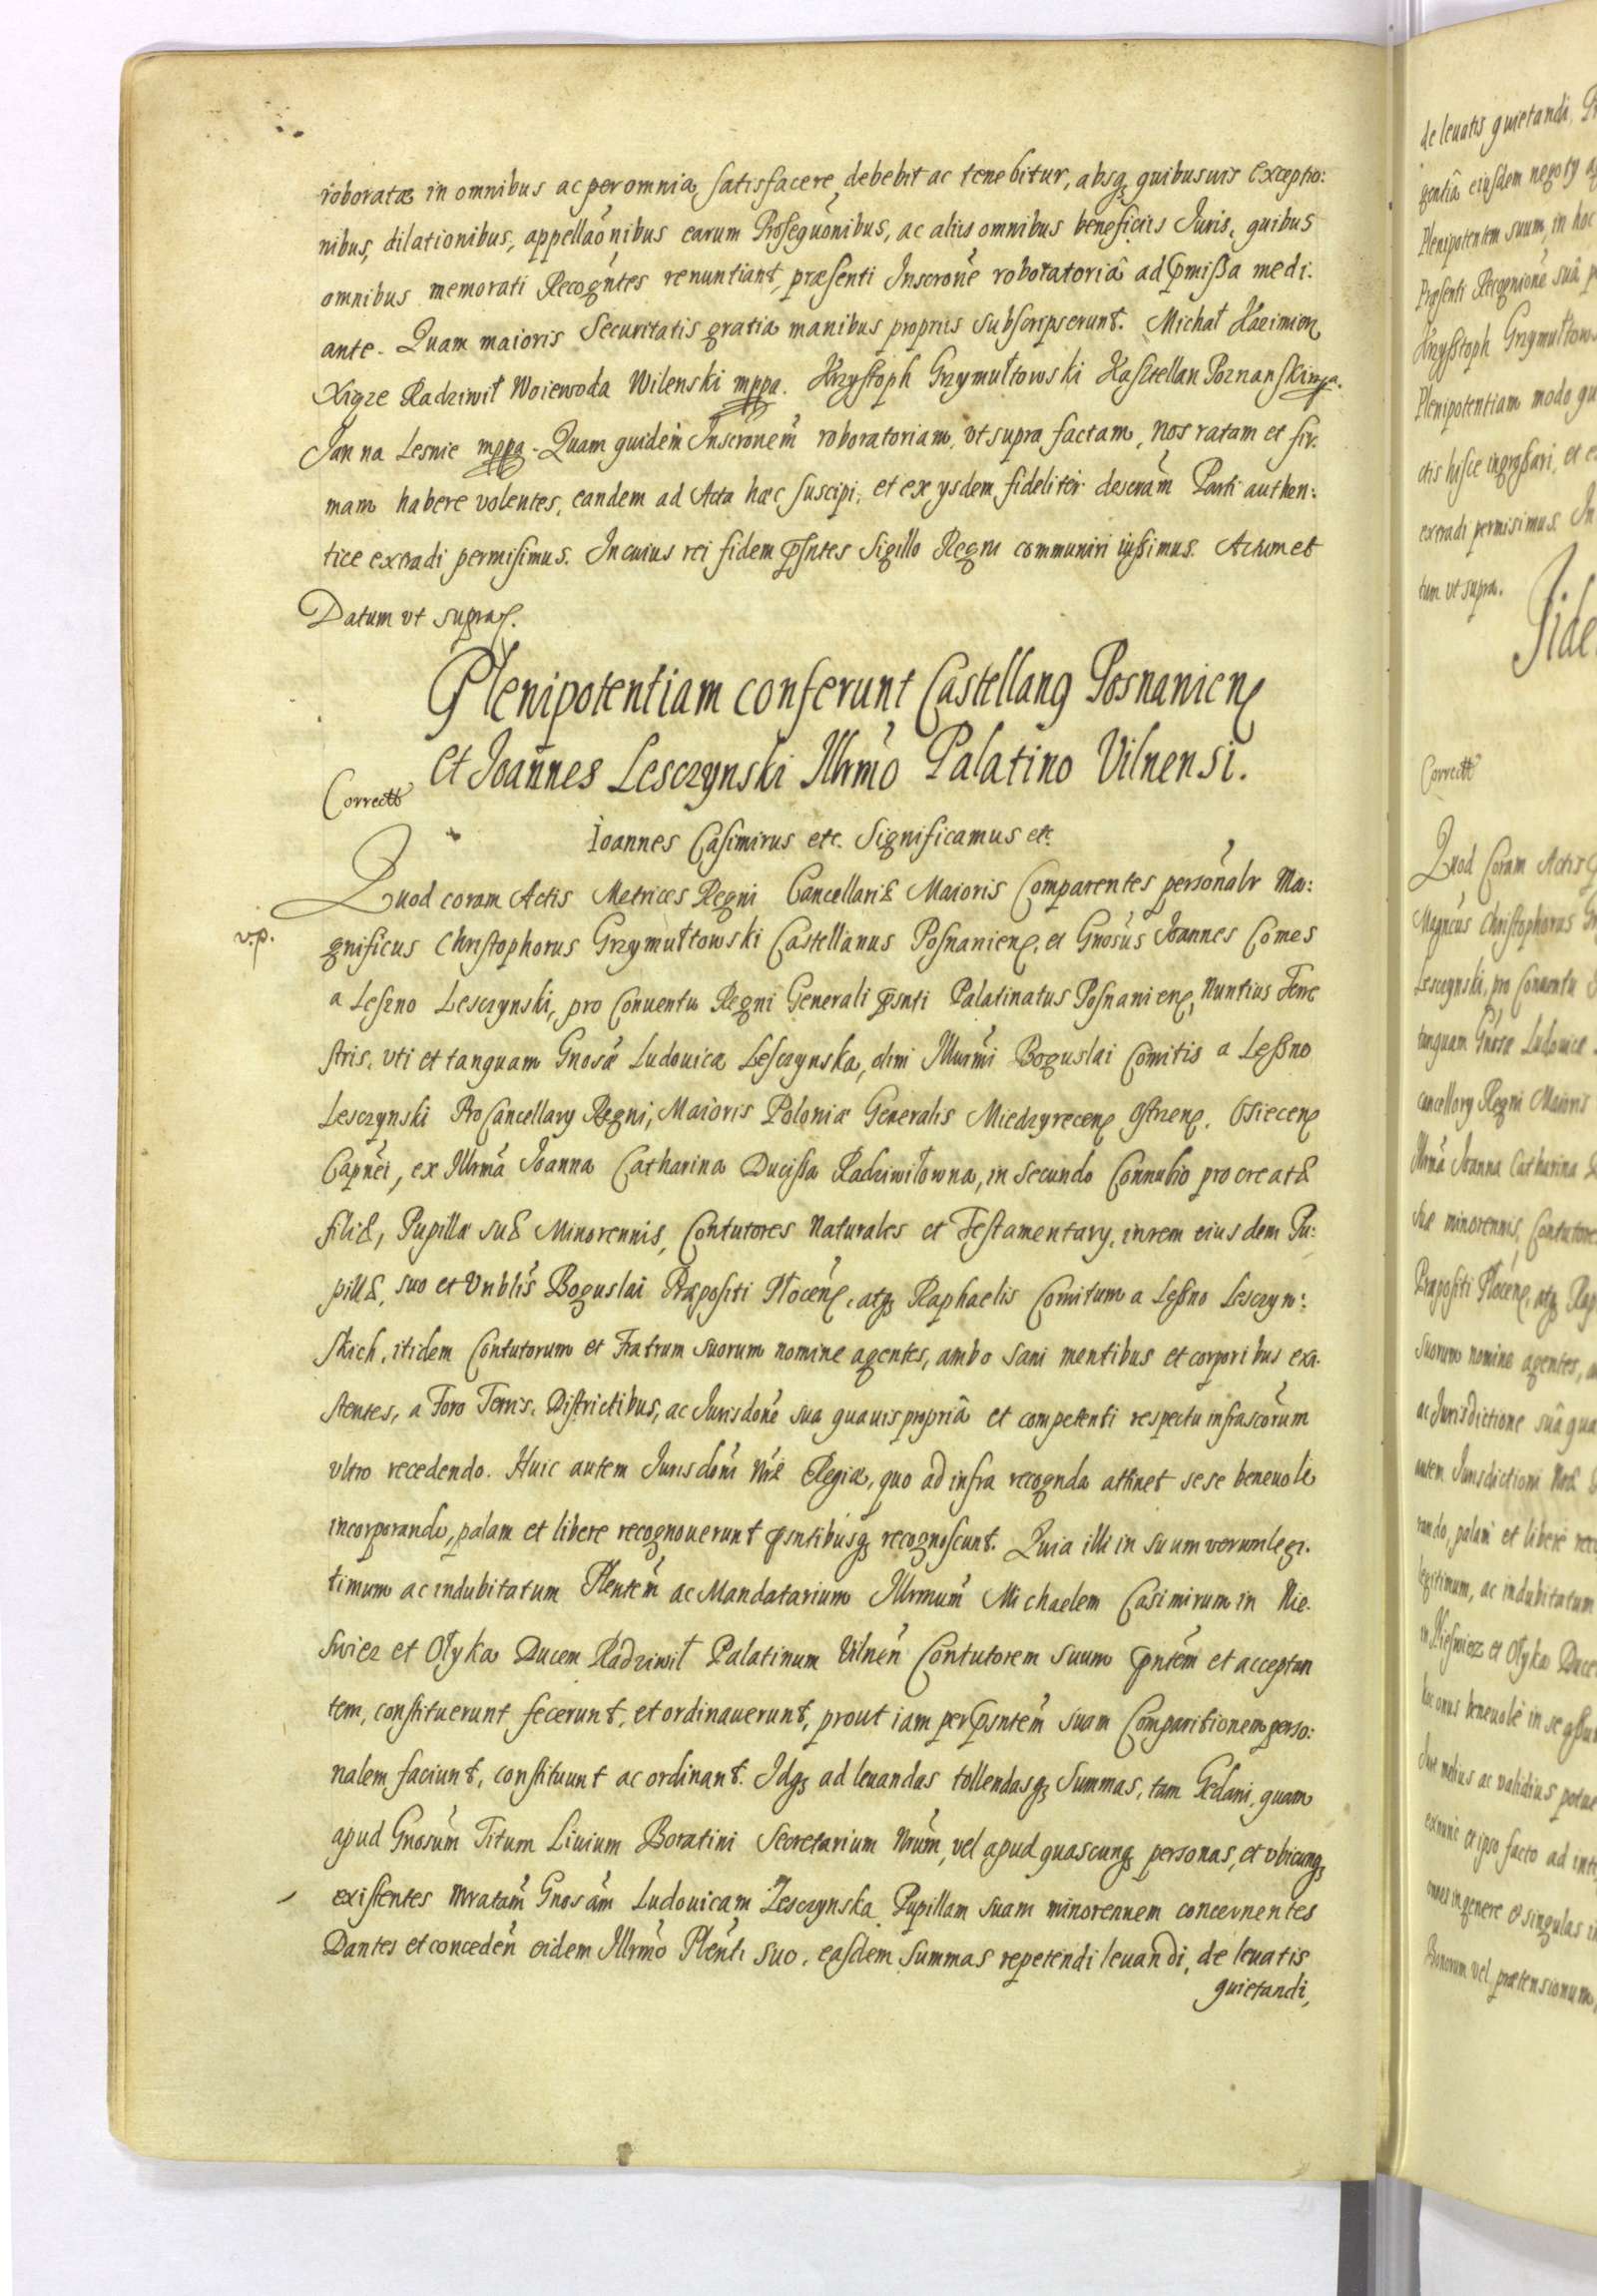 roboratæ in omnibus ac per omnia satisfacere debebit ac tenebitur, absq quibusuis exceptio:
nibus, dilationibus, appellaõnibus earum Prosequõnibus, ac aliis omnibus beneficiis Iuris, quibus
omnibus memorati Recogntes renuntiant, præsenti Inscrone roboratoriâ ad pmißa medi:
ante. Quam maioris Securitatis gratia manibus propriis subscripserunt. Michał Kazimierz
Xiąze Radziwił Woiewoda Wilenski mppa. Krzysztoph Grzymułtowski Kasztellan Poznanski mppa.
Jan na Lesnie mppa. Quam quidem Inscronem roboratoriam, vt supra factam, nos ratam et fir:
mam habere volentes, eandem ad Acta hæc suscipi, et ex ysdem fideliter descram Parti authen:
tice extradi permisimus. In cuius rei fidem psntes Sigillo Regni communiri iußimus. Actum et
Datum vt supra.
Plenipotentiam conferunt Castellang Posnanien
et Joannes Lesczynski Illrmo Palatino Vilnensi.
Correctt
Ioannes Casimirus etc. Significamus etc.
Quod coram Actis Metrices Regni Cancellariæ Maioris Comparentes personalr Ma:
v.p.
gnificus Christophorus Grzymułtowski Castellanus Posnanien, et Gnosus Joannes Comes
a Leszno Lesczynski, pro Conuentu Regni Generali psnti Palatinatus Posnanien, Nuntius Terre
stris, vti et tanquam Gnosæ Ludouica Lesczynska, olim Illurmi Boguslai Comitis a Leßno
Lesczynski Pro Cancellary Regni, Maioris Poloniæ Generalis Miedzyrecen, Ostrzen, Osiecen
Capnei, ex Illrma Joanna Catharina Ducissa Radziwiłowna, in secundo Connubio procreatæ
filiæ, Pupillæ suæ Minorennis, Contutores Naturales et Testamentary, in rem eiusdem Pu:
pillæ, suo et Vrblis Boguslai Præpositi Płocen, atq Raphaelis Comitum a Leßno Lesczyn:
skich, itidem Contutorum et Fratrum suorum nomine agentes, ambo sani mentibus et corporibus exi:
stentes, a Foro Terris, Districtibus, ac Jurisdone sua quauis propriâ et competenti respectu infrascorum
vltro recedendo. Huic autem Jurisdoni Nræ Regiæ, quo ad infra recognda attinet sese beneuole
incorporando, palam et libere recognouerunt psntibusq recognoscunt. Quia illi in suum verum legi:
timum ac indubitatum Plentem ac Mandatarium Illrmum Michaelem Casimirum in Nie:
swiez et Ołyka Ducem Radziwił Palatinum Vilnen Contutorem suum pntem et acceptan
tem, constituerunt fecerunt, et ordinauerunt, prout iam per psntem suam Comparitionem perso:
nalem faciunt, constituunt ac ordinant. Idq ad leuandas tollendasq Summas, tam Gedani, quam
apud Gnosum Titum Liuium Boratini Secretarium Nrum, vel apud quascunq personas, et vbicunq
existentes Mratam Gnosam Ludouicam Lesczynska Pupillam suam minorennem concernentes
Dantes et conceden eidem Illrmo Plenti suo, easdem Summas repetendi leuandi, de leuatis
quietandi,
de leuatis quietandi,
gentiâ eiusdem negoty
Plenipotentem suum, in hoc
Præsenti Recognione suâ
Krzysztoph Grzymułtows
Plenipotentiam modo
ctis hisce ingroßari, et
extradi permisimus. In
tum vt supra.
Fide
Correctt
Quod Coram Actis
Magncus Christophorus
Lesczynski, pro Conuentu
tanquam Gnosæ Ludouicæ
cancellary Regni Maioris
Illrma Joanna Catharina
suæ minorennis, Contutore
Præpositi Płocen, atq Rap
suorum nomine agentes,
ac Jurisdictione suâ qua
autem Jurisdictioni Nræ
rando, palam et libere reco
legitimum, ac indubitatum
in Nieswiez et Ołyka Duce
hoc onus beneuole in se
Jure melius ac validius potue
extunc et ipso facto ad
omnes in genere et singulas
Bonorum vel prætensionum